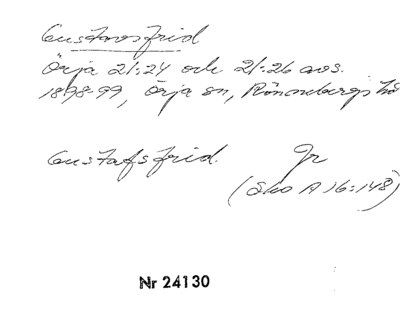 Gustavsfrid
Örja 21:24 och 21:26 avs.
1898-99, Örja sn, Rönnebergs hd
Gustafsfrid. Jr
(Sko A 16:148)
Nr 24130